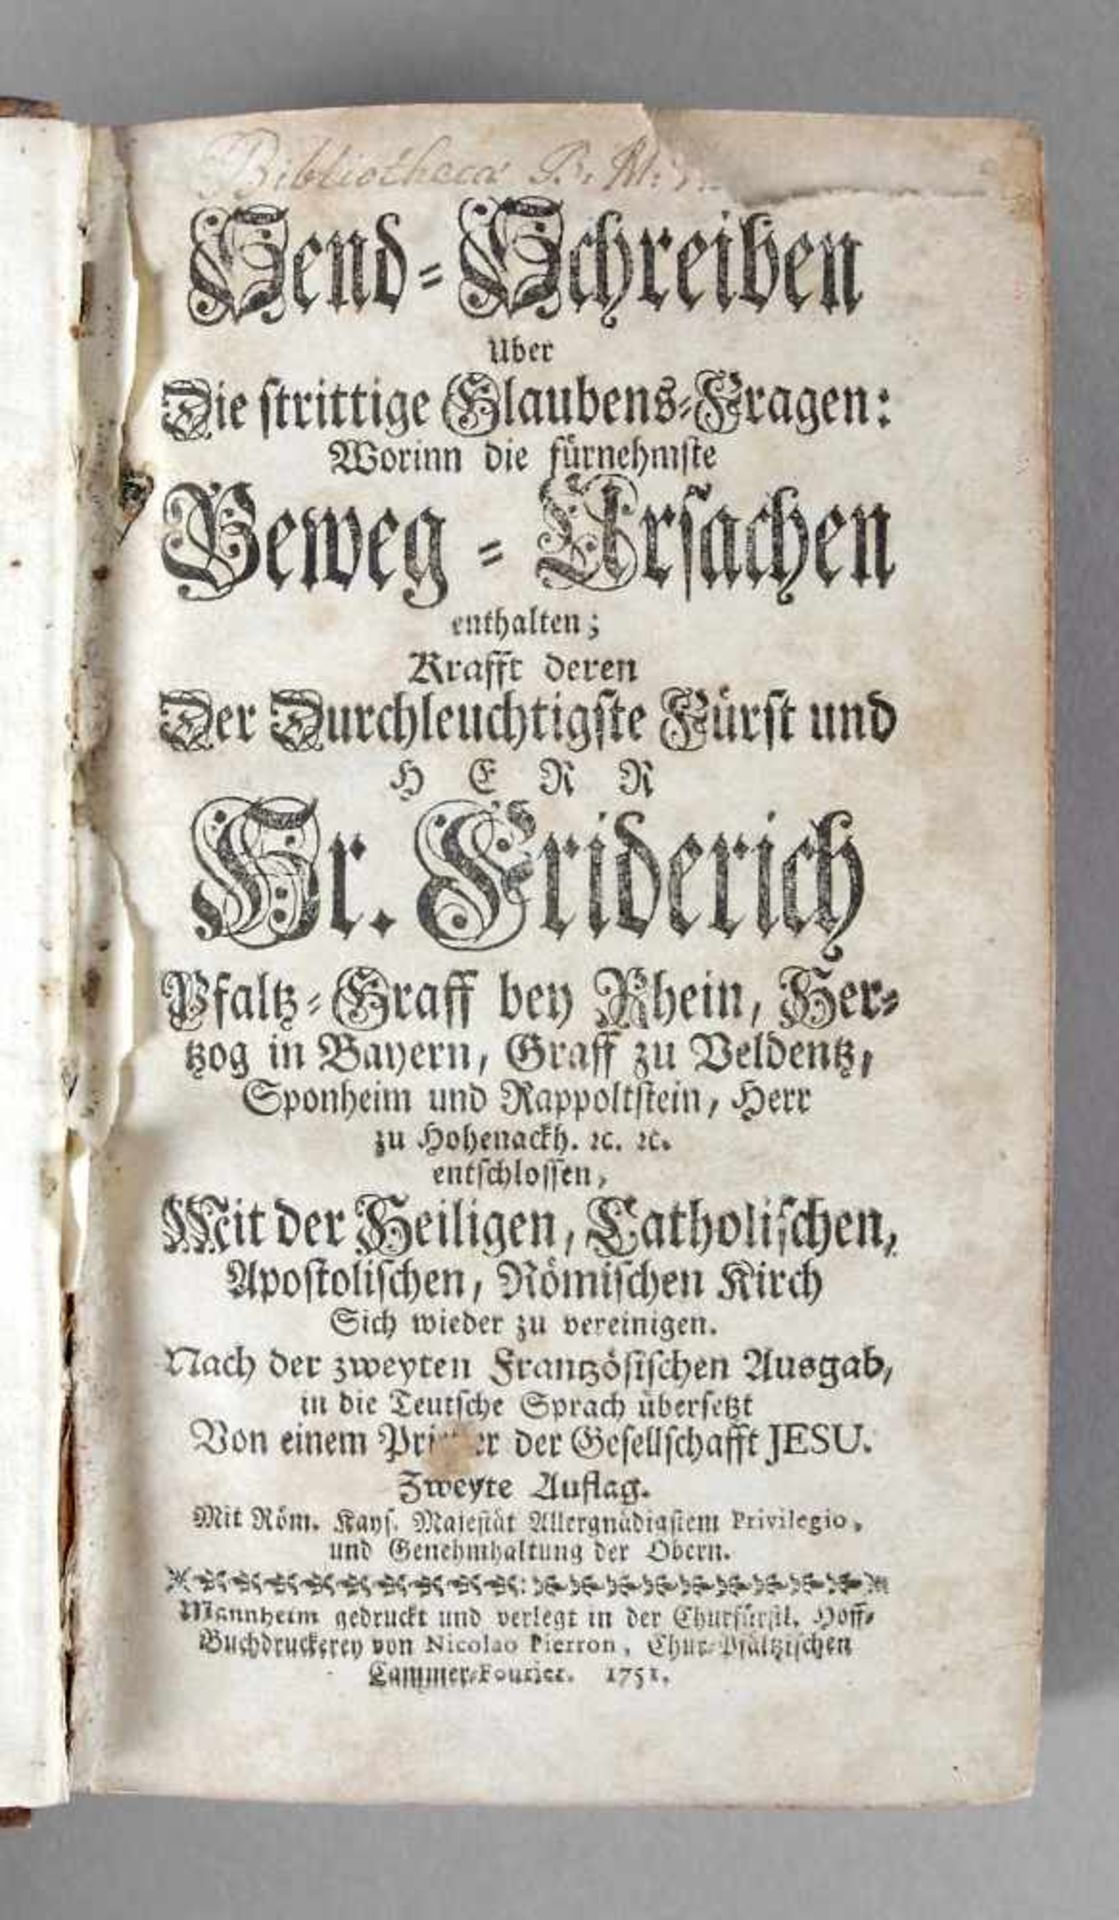 Bibliotheca B. M.
Send-Schreiben
Uber
Die strittige Glaubens-Fragen:
Worinn die fürnehmste
Beweg-Ursachen
enthalten;
Krafft deren
Der Durchleuchtigste Fürst und
HERR
Hr. Friderich
Pfaltz-Graff bey Rhein, Her-
tzog in Bayern, Graff zu Veldentz,
Sponheim und Rappoltstein, Herr
zu Hohenackh. ꝛc. ꝛc.
entschlossen,
Mit der Heiligen, Catholischen,
Apostolischen, Römischen Kirch
Sich wieder zu vereinigen.
Nach der zweyten Frantzösischen Ausgab,
in die Teutsche Sprach übersetzt
Von einem der Gesellschafft JESU.
Zweyte Auflag.
Mit Röm. Kays. Majestät Allergnädigstem Privilegio,
und Genehmhaltung der Obern.
Mannheim gedruckt und verlegt in der Churfürstl. Hoff-
Buchdruckerey von Nicolao Pierron, Chur-Pfältzischen
Cammer-Fourier. 1751.